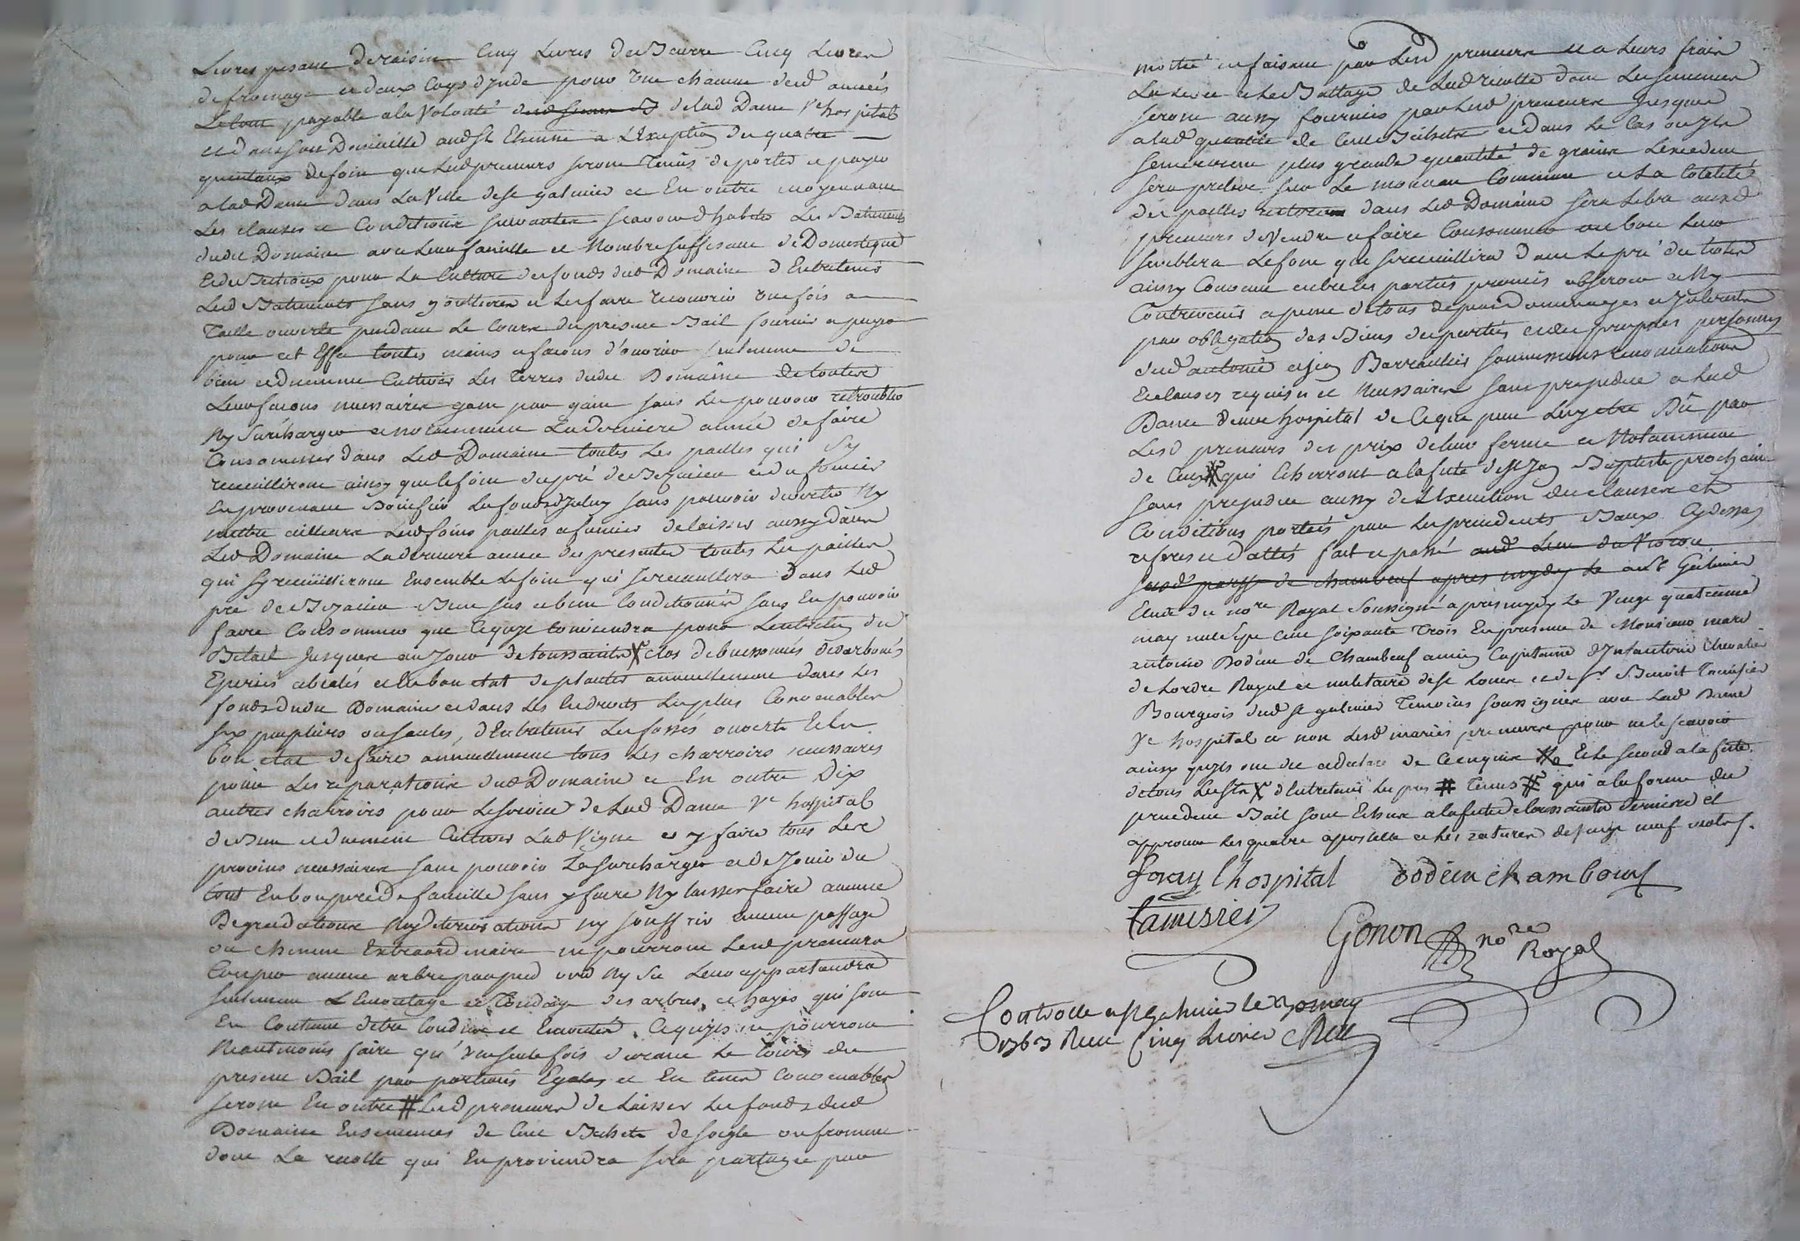 Livres pesant de raisin Cinq Livres de Beurre Cinq Livres
de fromage et deux Coqs d'Inde pour une chacune desd années
Le tout payable a la Volonté de lad Dame Ve hospital
et dans son Domicille aud St Etienne a L'Exception des quatre
quintaux de foin que Lesd preneurs seront Tenus de porter et payer
a lad Dame dans La Ville de St galmier et En outre moyennant
Les clauses et Conditions suivantes scavoir d'habiter Les Batiments
dudit Domaine avec Leur famille et Nombre suffisant de Domestiques
Et de Bestiaux pour La Culture des fonds dud Domaine d'Entretenir
Lesd Batiments sans gouttieres et Les faire recouvrir une fois a
Taille ouverte pendant Le Cours du present Bail fournir et payer
pour cet Effet toutes mains et facons d'ouvrier seulement de
bien et duement Cultiver Les Terres dudit Domaine de toutes
Leurs facons necessaires gain par gain sans Les pouvoir retroubler
Ny Surcharger et notamment La derniere année de faire
Consommer dans Led Domaine toutes Les pailles qui s'y
recueilliront ainsy que le foin du pré de Bezacieu et du fumier
En provenant Bonifier Les fonds d'Iceluy sans pouvoir divertir Ny
mettre ailleurs Lesd foins pailles et fumiers de laisser aussy dans
Led Domaine La derniere année des presentes toutes Les pailles
qui s'y recueilliront Ensemble Le foin qui se recueillira Dans Led
pré de Bezacieu Bien sec et bien Conditionné sans En pouvoir
faire Consommer que Ce qu'il Conviendra pour L'entretien du
Betail Jusques au Jour de toussaints clos de buissonnés
et En bon etat de planter annuellement dans Les
fonds dudit Domaine et dans Les Endroits Les plus Convenables
six peupliers ou saules, d'Entretenir Les fossés ouverts Et En
bon etat de faire annuellement tous Les charrois necessaires
pour Les reparations dud Domaine et En outre Dix
autres charrois pour Le service de Lad Dame Ve hospital
de Bien et duement Cultiver Lad Vigne et y faire tous Les
provins necessaires sans pouvoir La surcharger et de Jouir du
tout En bon pere de famille sans y faire Ny laisser faire aucune
Degradations Ny deteriorations ny souffrir aucun passage
ou chemin Extraordinaire ne pourront Lesd preneurs
Couper aucun arbre par pied vert Ny sec Leur appartiendra
seulement L'Emondage et Tondage des arbres et hayes qui sont
En Coutume d'etre tondus et Emondés, Ce qu'ils ne pourront
Neantmoins faire qu'une seule fois durant Le Cours du
present Bail par portions Egales et En tems Convenables
seront En outre # Lesd preneurs de Laisser Les fonds dud
Domaine Ensemencés de Cent Bichets de seigle ou froment
dont La recolte qui En proviendra sera partagée par
moitié en faisant par Lesd preneurs et a Leurs frais
La levée et Le Battage de Lad recolte dont Les semences
seront aussy fournies par Lesd preneurs Jusques
a lad quantité de Cent Bichets et dans Le Cas ou Ils
semeroient plus grande quantité de grains L'excedent
sera prelevé sur Le monceau Commun et La totalité
des pailles dans Led Domaine sera Libre auxd
preneurs de Vendre et faire Consommer ou bon Leur
semblera Le foin qui se recueillira dans Le pré
ainsy Convenu entre les parties promis observer et Ny
Contrevenir a peine de tous depens dommages et Interets
par obligation des Biens des parties et des propres personnes
dud antoine et Jean Barrallier soumissions renonciations
Et clauses requises et Necessaires sans prejudice a lad
Dame Veuve hospital de Ce qui peut Luy etre Dû par
Lesd preneurs des prix de leur ferme et Notamment
de Ceux # qui Echerront a la fete de St Jean Baptiste prochaine
sans prejudice aussy de L'execution des clauses et
Conditions portées par Les precedents Baux Cy dessus
referés et dattés fait et passé aud Lieu du Vieron
susd parr de chambeuf apres midy Le aud St Galmier
Etude du nore Royal Soussigné apres midy Le Vingt quatrieme
may mil Sept Cent soixante Trois En presence de Monsieur marc
antoine Bodeun de Chambeuf ancien Capitaine d'Infanterie Chevalier
de Lordre Royal et militaire de St Louis et de Sr Benoit Tamisier
Bourgeois dud St galmier Temoins soussignés avec Lad Dame
Ve hospital et non Lesd mariés preneurs pour ne le scavoir
ainsy qu'ils ont dit et declaré de Ce enquis Et Le second a la fete
de tous Les Sts d'Entretenir Les prés # Tenus # qui a la forme du
precedent Bail sont Echus a la fete de toussaints derniere et
approuvé Les quatre apostilles et Les ratures de seize neuf mots.
foray l'hospital bodeün chambeuf
tamisier
Gonon nore
Royal
Controllé a St Galmier le 30 may
1763 Reçu Cinq Livres